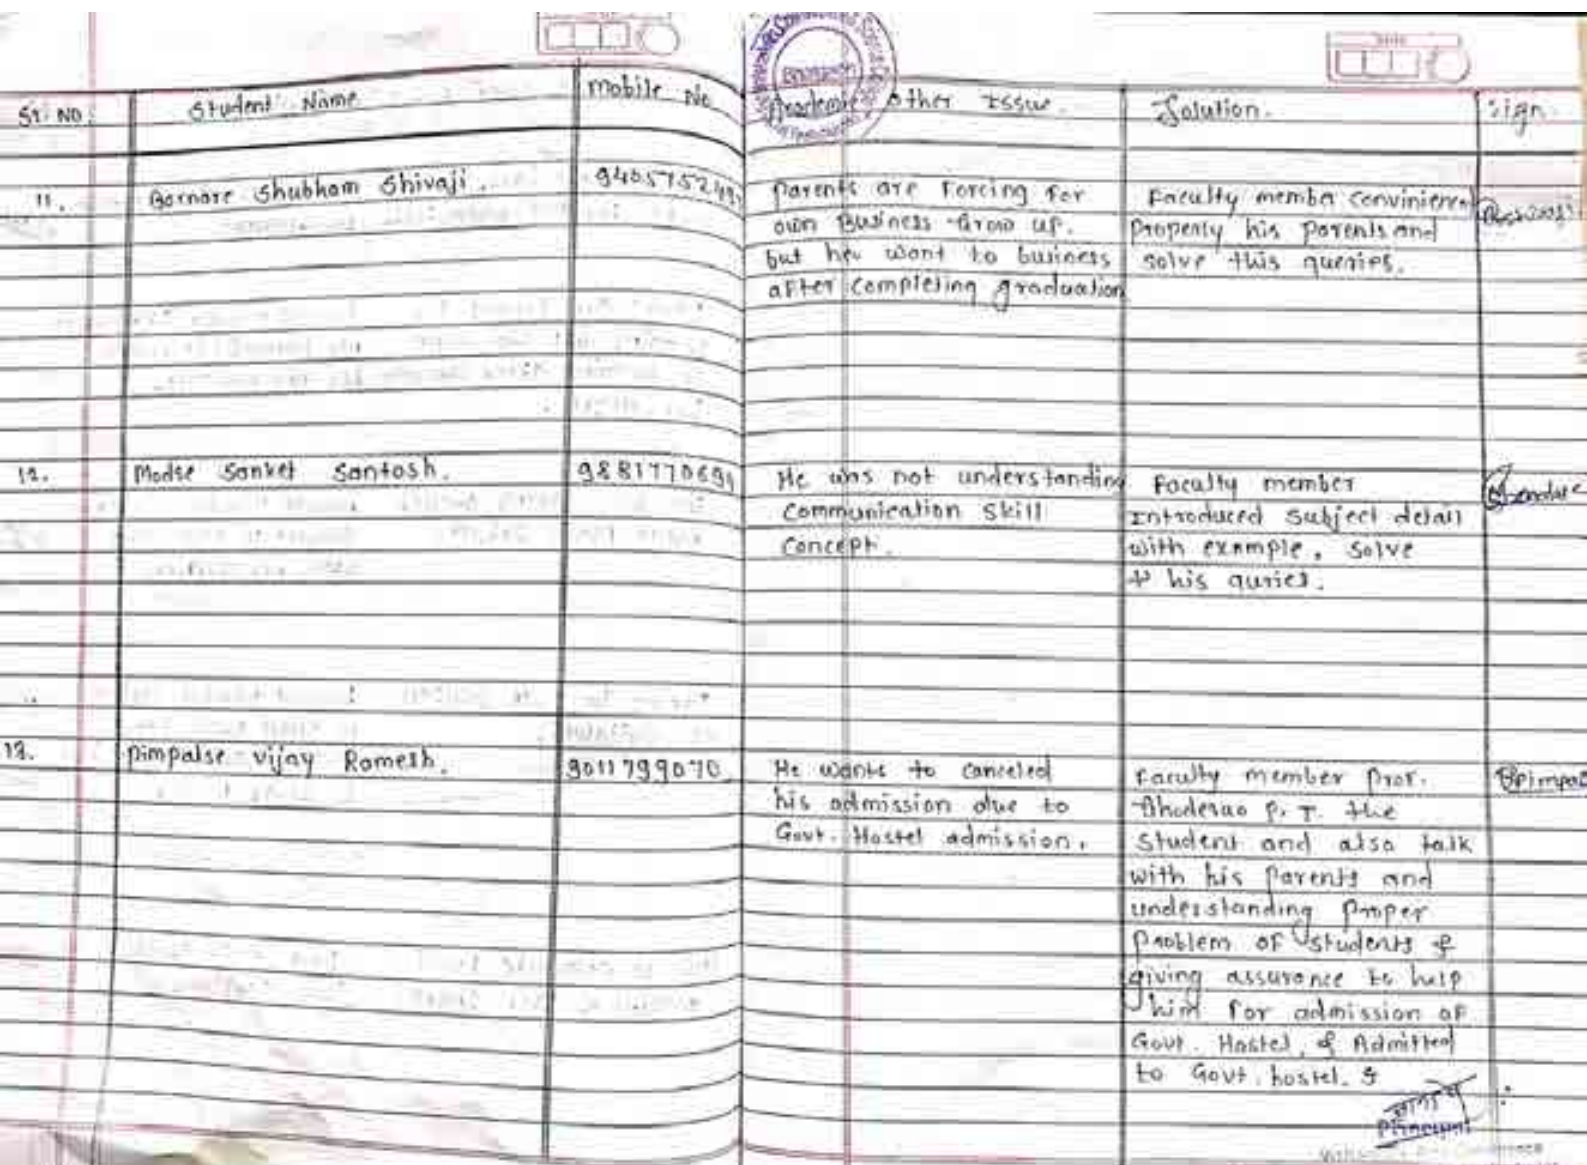 Sr. No.
Student Name
Mobile No
Other Issue.
Solution.
Sign.
11.
Bornare Shubham Shivaji.
Parents are Forcing for
own Business Grow up.
but her want to business
after completing graduation
Faculty member
properly his parents and
solve this queries.
12.
Sanket Santosh.
He was not understanding
Communication Skill
Concept.
Faculty member
Introduced Subject detail
with example, solve
his quries.
13.
Pimpalse Vijay Ramesh.
9011799070
He wants to canceled
his admission due to
Govt. Hostel admission.
Faculty member Prof.
P. T. the
Student and also talk
with his parents and
understanding proper
problem of students &
giving assurance to help
him for admission of
Govt. Hostel, & Admitted
to Govt. hostel. &
Principal